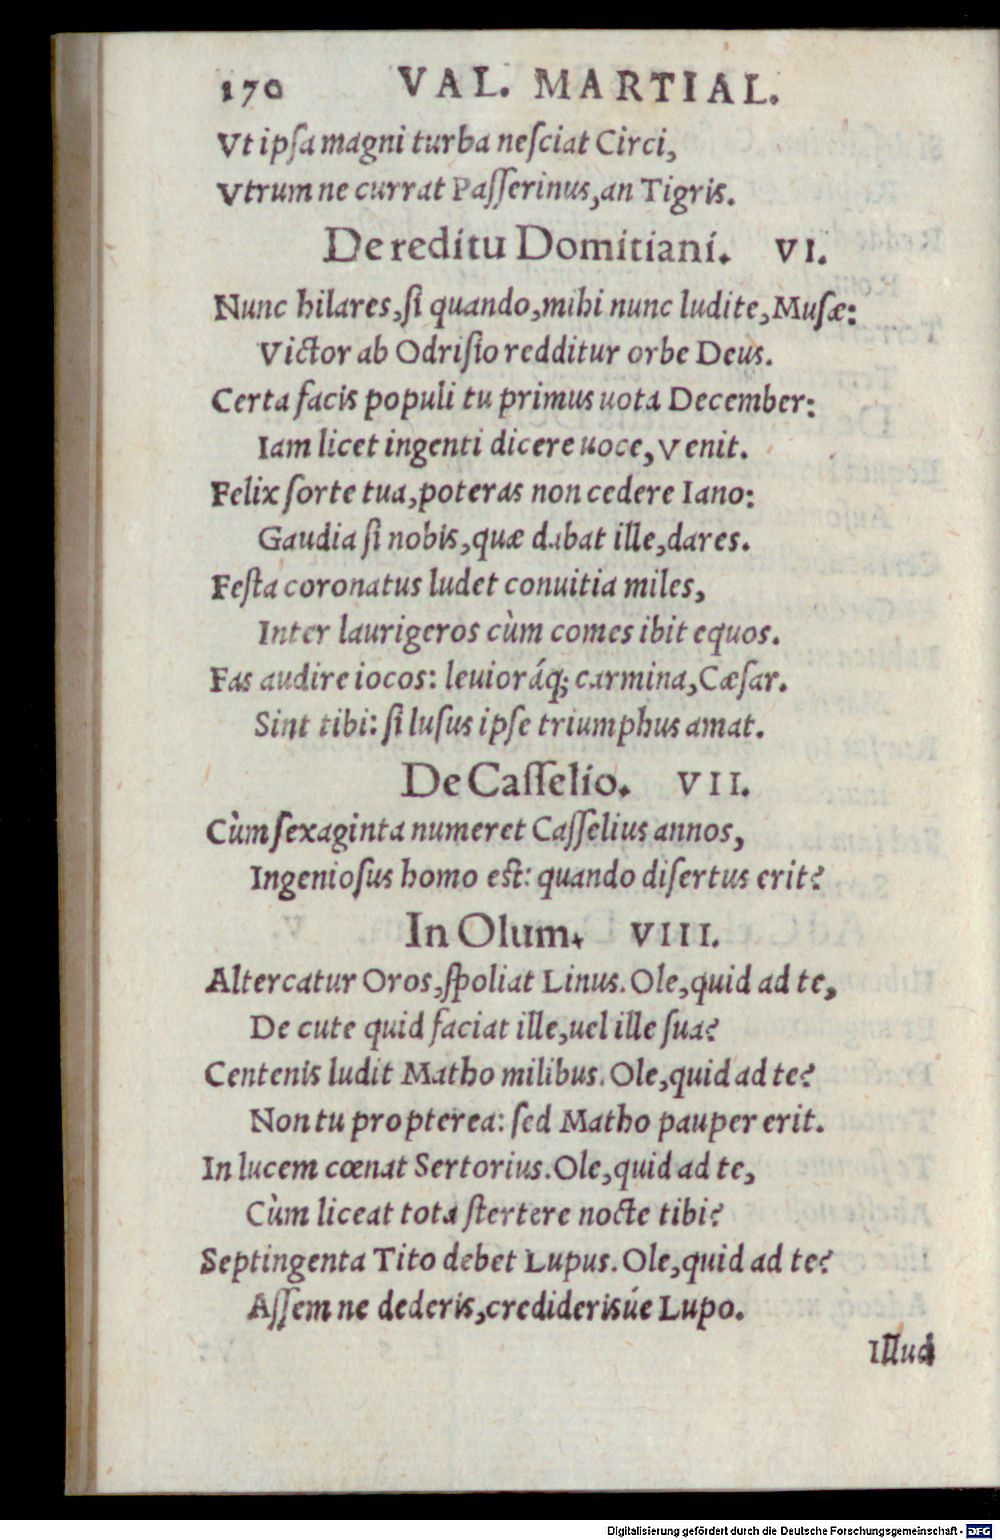 170 VAL. MARTIAL.
Vt ipſa magni turba neſciat Circi,
Vtrum ne currat Paſſerinus, an Tigris.
De reditu Domitiani. VI.
Nunc hilares, ſi quando, mihi nunc ludite, Muſæ:
Victor ab Odriſio redditur orbe Deus.
Certa facis populi tu primus uota December:
Iam licet ingenti dicere uoce, Venit.
Felix ſorte tua, poteras non cedere Iano:
Gaudia ſi nobis, quæ dabat ille, dares.
Feſta coronatus ludet conuitia miles,
Inter laurigeros cùm comes ibit equos.
Fas audire iocos: leuioráq; carmina, Cæſar.
Sint tibi: ſi luſus ipſe triumphus amat.
De Caſſelio. VII.
Cùm ſexaginta numeret Caſſelius annos,
Ingenioſus homo eſt: quando diſertus erit?
In Olum. VIII.
Altercatur Oros, ſpoliat Linus. Ole, quid ad te,
De cute quid faciat ille, uel ille ſua?
Centenis ludit Matho milibus. Ole, quid ad te?
Non tu propterea: ſed Matho pauper erit.
In lucem cœnat Sertorius. Ole, quid ad te,
Cùm liceat tota ſtertere nocte tibi?
Septingenta Tito debet Lupus. Ole, quid ad te?
Aſſem ne dederis, credideriſúe Lupo.
Illud
Digitalisierung gefördert durch die Deutsche Forschungsgemeinschaft - DFG